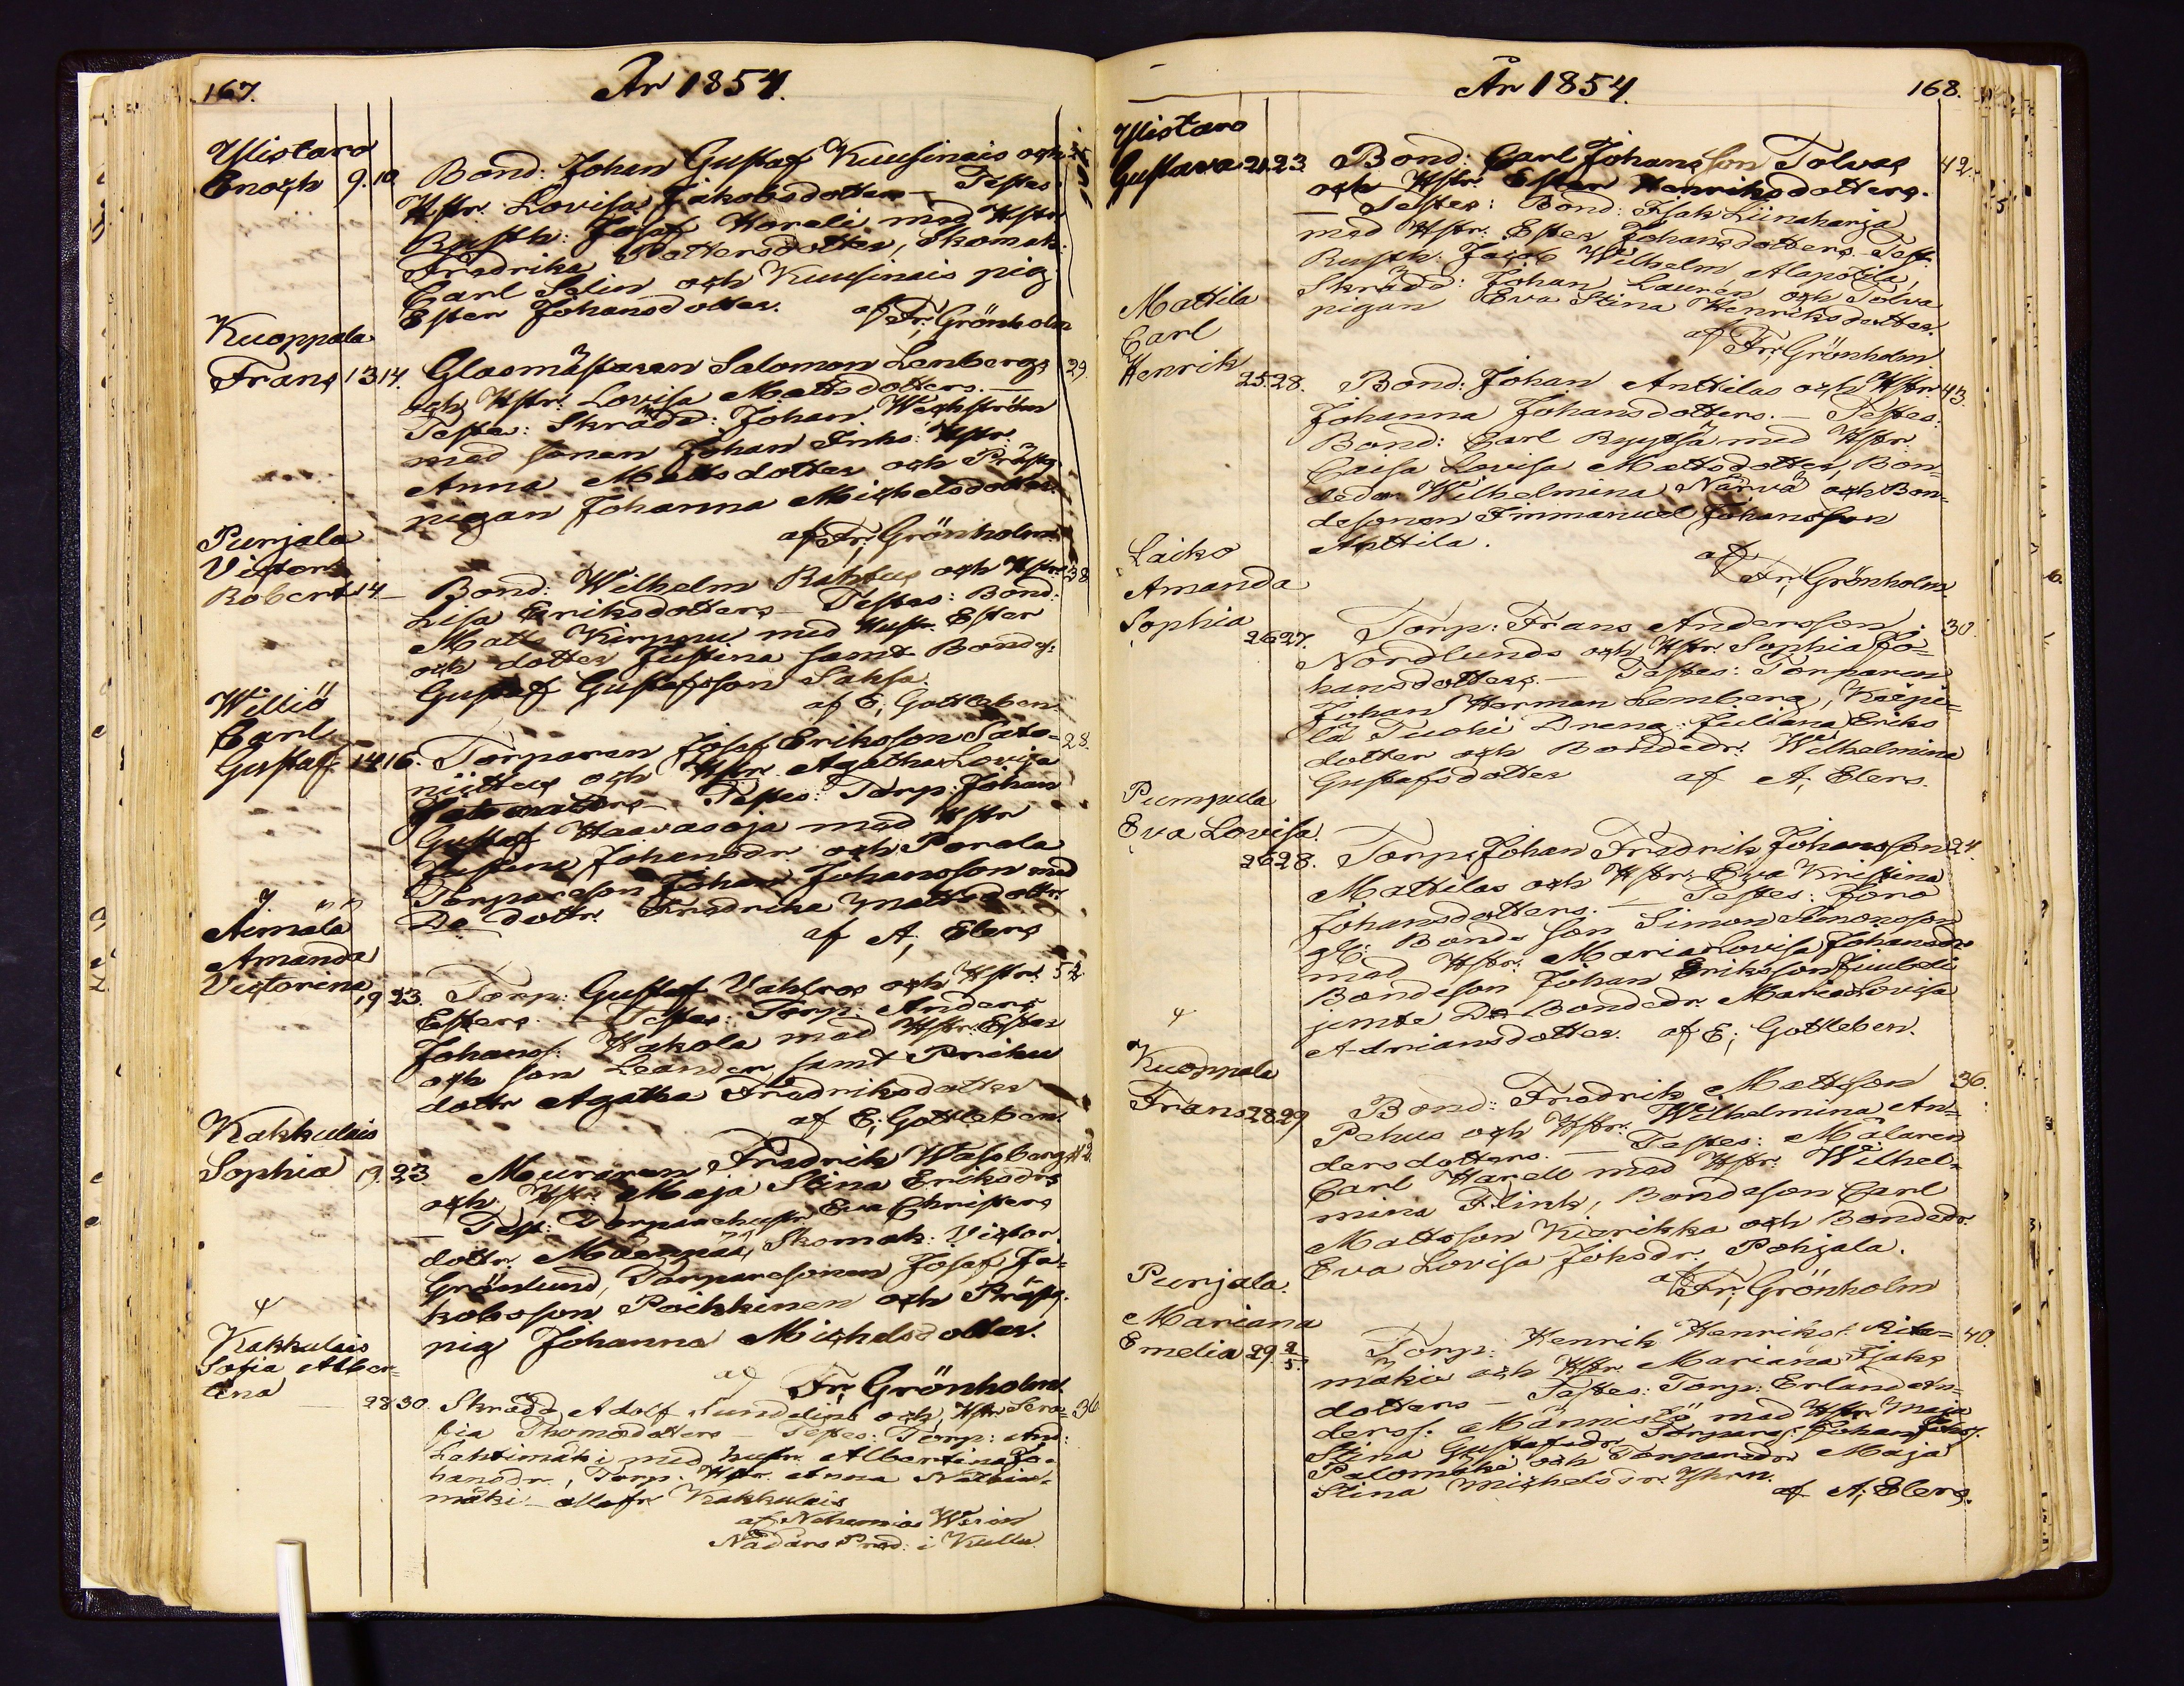 167. År 1854.
Ylistaro
Enoch 9. 10. Bond: Johan Gustaf Kuusinais och
Hstr. Lovisa Jakobsdotters - Testes:
Rusth: Josef Horeli med Hstr
Fredrika Pettersdotter, Skomak:
Carl Selin och Kuusinais pig
Ester Johansdotter. af Fr; Grönholm
Kuoppala
Frans 13 14. Glasmästaren Salomon Lenbergs 29.
och Hstr: Lovisa Mattsdotters. -
Testes: Skrädd: Johan Wechström
med sonen Johan Hstr.
Anna Mattsdotter och Prästg.
pigan Johanna Michelsdotter.
af Fr; Grönholm
Punjala
Victor
Robert 14 - Bond: Wilhelm Rahtus och Hstr 38
Lisa Eriksdotters - Testes: Bond:
Matts Kirppu med Hustr. Ester
och dotter Justina samt Bondes:
Gustaf Gustafsson Saksa.
af E; Gottleben.
Williö
Carl
Gustaf 14 16. Torparen Josef Eriksson Sato- 28.
niittus och Hstr. Agatha Lovisa
- Testes: Torp: Johan
Gustaf Haavasoja med Hstr
Justina Johansdr. och Perala
Torpareson Johan Johansson med
De dottr. Fredrika Mattsdottr.
af A; Elers
Äimälä
Amanda
Victorina 19 23. Torp: Gustaf Vahlros och Hstr. 52
Esters. - Testes: Torp: Anders
Johanss: Hakola med Hstr. Ester
och son Leander samt Prihu
dottr Agatha Fredriksdotter
af E; Gottleben.
Kakkulais
Sophia 19. 23 Muraren Fredrik Wassbergs 42
och Hstr. Maja Stina Eriksdrs
- Test: Torparehustr. Eva Christers
dottr. Mäenpää, Skomak: Victor
Grönlund, Torparesonen Josef Ja-
kobsson Poikkinen och Prästg.
pig Johanna Michelsdotter.
af Fr; Grönholm
Kakkulais
Sofia Alber-
tina 28 30. Skrädd. Adolf Sundelins och Hstr Sera- 36
fia Thomasdotters - Testes: Torp: And:
Lahtimäki med hustr Albertina Jo-
hansdr., Torp. Hstr Anna
mäki - alla fr. Kakkulais
af Nehemias Wein
Nådårs Pred: i Kulla
År 1854. 168.
Ylistaro
Gustava 21. 23 Bond: Carl Johansson Tolvas 42.
och Hstr. Ester Henriksdotters.
- Testes: Bond: Isak Liinaharja
med Hstr. Ester Johansdotters - Test.
Rusth: Jacob Wilhelm Alapotila,
Skrädd: Johan Lauren och Tolva
pigan Eva Stina Henriksdotter.
af Fr; Grönholm
Mattila
Carl
Henrik 25. 28. Bond: Johan Anttilas och Hstr 43.
Johanna Johansdotters. - Testes:
Bond: Carl Ryytsä med Hstr.
Caisa Lovisa Mattsdotter, Bon-
dedr Wilhelmina Närvä och Bon-
desonen Immanuel Johansson
Anttila. af
Fr; Grönholm
Laiko
Amanda
Sophia 26 27. Torp: Frans Andersson 30.
Nordlunds och Hstr Sophia Jo-
hansdotters. - Testes: Torparen
Johan Herman Lemberg, Keipi-
lä Tuohi Dreng: Juliana Eriks
dotter och Bondedr. Wilhelmina
Gustafsdotter af A; Elers.
Pumpula
Eva Lovisa
26 28. Torp: Johan Fredrik Johansson 24.
Mattilas och Hstr: Eva Kristina
Johansdotters. - Testes: Joro
gk. Bonde son Simon Simonsson
med Hstr. Maria Lovisa Johansdr
Bondeson Johan Eriksson Juuloti
jemte D:o Bondedr. Maria Lovisa
Adriansdotter. af E; Gottleben.
Kuoppala
Frans 28 29 Bond: Fredrik Mattsson 36.
Pehus och Hstr: Wilhelmina An-
dersdotters. - Testes: Målaren
Carl Harell med Hstr. Wilhel-
mina Flink, Bondeson Carl
Mattsson Kierikka och Bondedr.
Eva Lovisa Johsdr. Pohjala.
af Fr; Grönholm
Punjala.
Mariana
Emelia 29 2/5. Torp: Henrik Henrikss. Rita- 40.
mäkis och Hstr Mariana Isaks
dotters - Testes: Torp: Erland An-
derss: Männistö med Hstr Maja
Stina Gustafsdr, Torpares: Johan Johss.
Palomäki och Torparedr Maja
Stina Michelsdr.
af A; Elers.